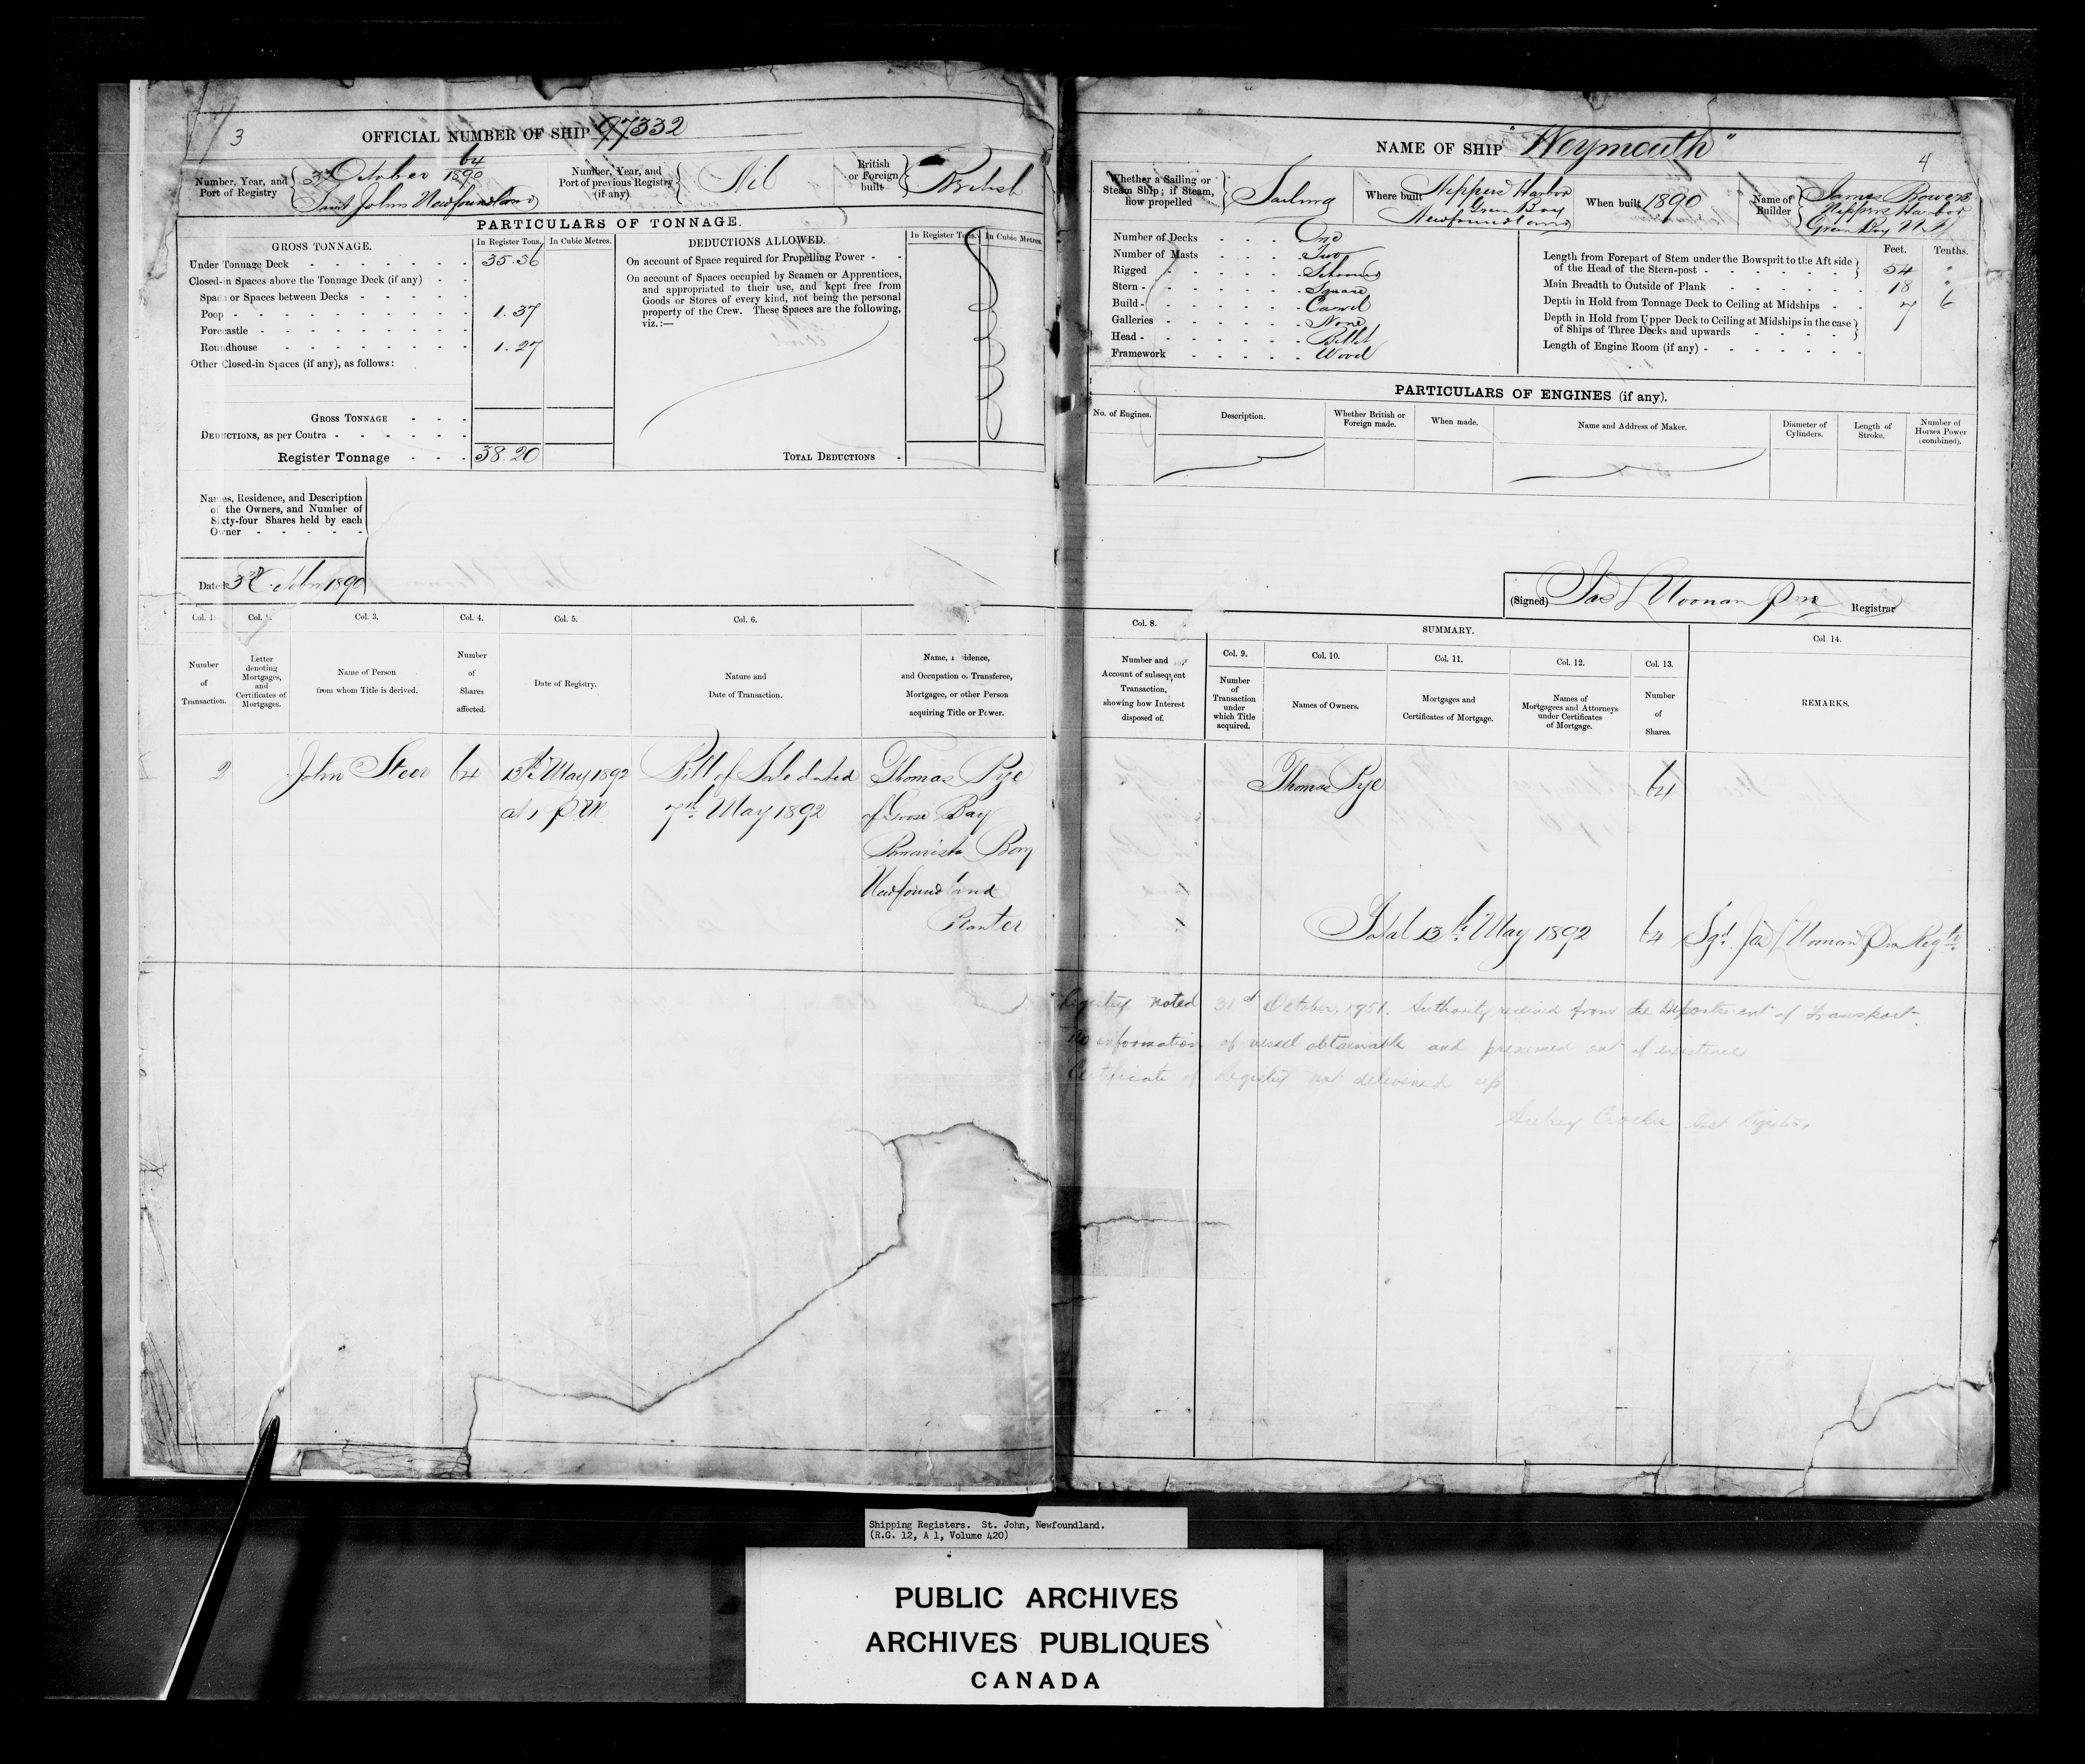 3
OFFICIAL NUMBER OF SHIP 97332
Number, Year, and
Port of Registry
64
3rd October 1890
Saint Johns Newfoundland
Number, Year, and
Port of previous Registry
(if any)
Nil
British
or Foreign
built
British
PARTICULARS OF TONNAGE.
GROSS TONNAGE.
In Register Tons.
In Cubic Metres.
Under Tonnage Deck 35.56
Closed-in Spaces above the Tonnage Deck (if any)
Space or Spaces between Decks
Poop 1.37
Forecastle
Roundhouse 1.27
Other Closed-in Spaces (if any), as follows:
GROSS TONNAGE
DEDUCTIONS, as per Contra
Register Tonnage 38.20
DEDUCTIONS ALLOWED.
In Register Tons.
In Cubic Metres.
On account of Space required for Propelling Power
On account of Spaces occupied by Seamen or Apprentices,
and appropriated to their use, and kept free from
Goods or Stores of every kind, not being the personal
property of the Crew. These Spaces are the following,
viz.:—
TOTAL DEDUCTIONS
Names, Residence, and Description
of the Owners, and Number of
Sixty-four Shares held by each
Owner
Dated 3rd Octbr 1890
Col. 1.
Number
of
Transaction.
Letter
denoting
Mortgages,
and
Certificates of
Mortgages.
Col. 3.
Name of Person
from whom Title is derived.
Col. 4.
Number
of
Shares
affected.
Col. 5.
Date of Registry.
Col. 6.
Nature and
Date of Transaction.
Name, Residence,
and Occupation of Transferee,
Mortgagee, or other Person
acquiring Title or Power.
2 John Steer 64 13th May 1892 Bill of Sale dated Thomas Pye
at 1 P.M. 7th May 1892 of Goose Bay
Bonavista Bay
Newfoundland
Planter
NAME OF SHIP "Weymouth"
4
Whether a Sailing or
Steam Ship; if Steam,
how propelled
Sailing
Where built
Nippers Harbor
Green Bay
Newfoundland
When built 1890
Name of
Builder
James Bowers
Nippers Harbor
Green Bay N.F.
Number of Decks One
Number of Masts Two
Rigged Schooner
Stern Square
Build Carvel
Galleries None
Head Billet
Framework Wood
Feet. Tenths.
Length from Forepart of Stem under the Bowsprit to the Aft side
of the Head of the Stern-post 54 "
Main Breadth to Outside of Plank 18 "
Depth in Hold from Tonnage Deck to Ceiling at Midships 7 6
Depth in Hold from Upper Deck to Ceiling at Midships in the case
of Ships of Three Decks and upwards
Length of Engine Room (if any)
PARTICULARS OF ENGINES (if any).
No. of Engines.
Description.
Whether British or
Foreign made.
When made.
Name and Address of Maker.
Diameter of
Cylinders.
Length of
Stroke.
Number of
Horses Power
(combined).
(Signed) Jas L Noonan Registrar
Col. 8.
Number and
Account of subsequent
Transaction,
showing how Interest
disposed of.
SUMMARY.
Col. 9.
Number
of
Transaction
under
which Title
acquired.
Col. 10.
Names of Owners.
Col. 11.
Mortgages and
Certificates of Mortgage.
Col. 12.
Names of
Mortgagees and Attorneys
under Certificates
of Mortgage.
Col. 13.
Number
of
Shares.
Col 14.
REMARKS.
Thomas Pye 64
Total 13th May 1892 64 Sgd. Jas L Noonan
Registry noted 31st October, 1951. Authority received from the Department of Transport.
No information of vessel obtainable and presumed out of existence
Certificate of Registry not delivered up
Shipping Registers. St. John, Newfoundland.
(R.G. 12, A 1, Volume 420)
PUBLIC ARCHIVES
ARCHIVES PUBLIQUES
CANADA